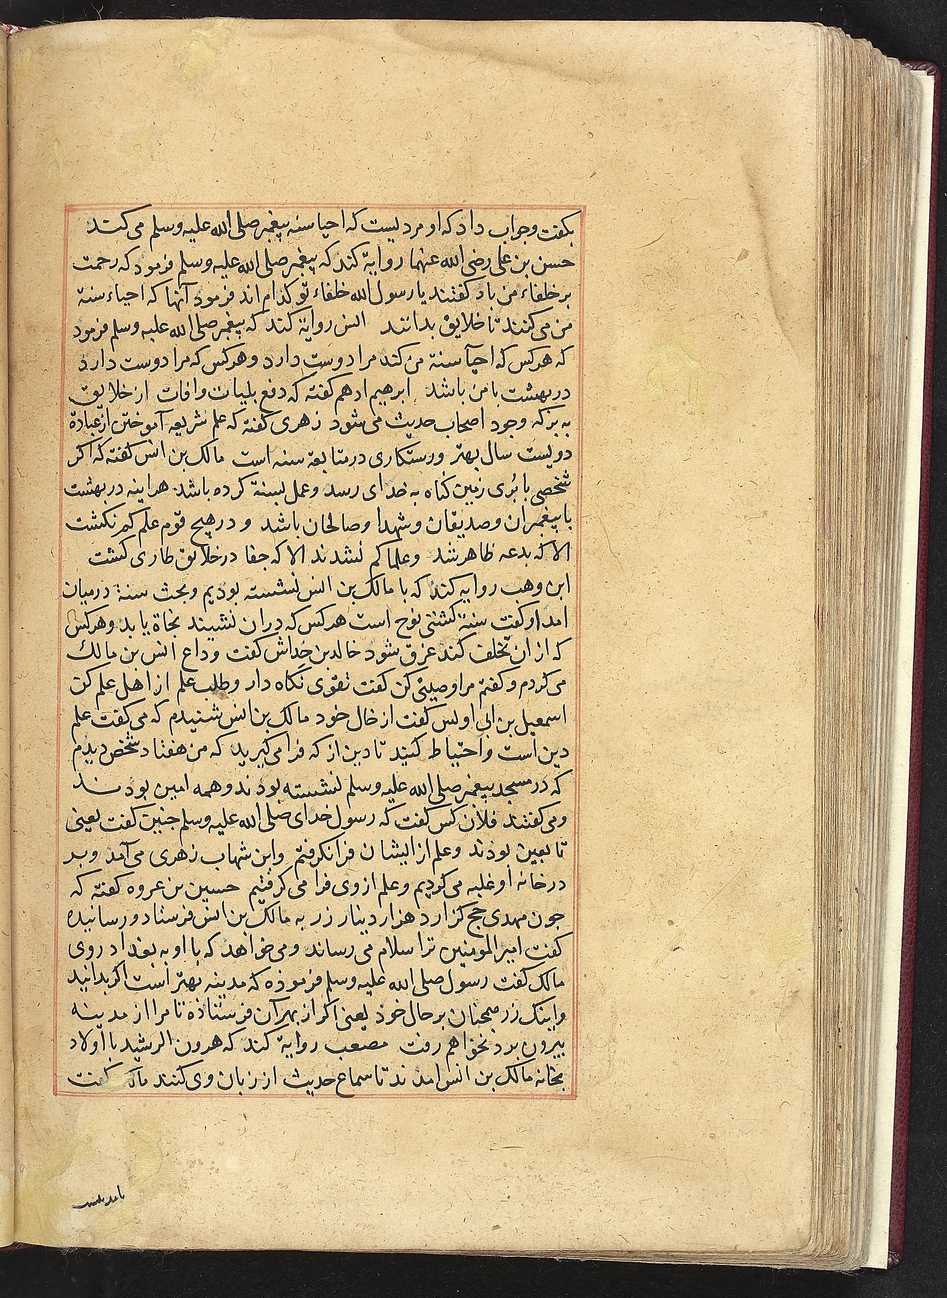 بگفت و جواب داد که او مردیست که احیا سنه پیغمبر صلی الله علیه وسلم می کند
حسن بن علی رضی الله عنهما روایة کند که پیغمبر صلی الله علیه وسلم فرمود که رحمت
بر خلفاء من باد گفتند یا رسول الله خلفاء تو کدام اند فرمود آنها که احیاء سنة
من می کنند تا خلایق بدانند انس روایة کند که پیغمبر صلی الله علیه وسلم فرمود
که هر کس که احیآ سنة من کند مرا دوست دارد و هر کس که مرا دوست دارد
در بهشت با من باشد ابرهیم ادهم کفته که دفع بلیات و افات از خلایق
به برکه وجود اصحاب حدیث می شود زهری کفته که علم شریعه آموختن از عبادة
دویست سال بهتر و رستکاری در متابعة سنه است مالک بن انس کفته که اکر
شخصی با پُری زمین کناه به خدای رسد و عمل بسنة کرده باشد هراینه در بهشت
با پیغمبران و صدیقان و شهدا و صالحان باشد و در هیچ قوم علم کم نکشت
الا که بدعه ظاهر شد و علما کم نشدند الا که جفا در خلایق طاری کشت
ابن وهب روایه کند که با مالک بن انس نشسته بودیم و بحث سنة در میان
امد او کفت سنة کشتی نوح است هر کس که در ان نشیند نجاة یابد و هر کس
که از ان تخلف کند غرق شود خالد بن خداش کفت وداع انس بن مالک
می کردم و کفتم مرا وصیتی کن کفت تقوی نکاه دار و طلب علم از اهل علم کن
اسمعیل بن ابی اویس کفت از خال خود مالک بن انس شنیدم که می کفت علم
دین است و احتیاط کنید تا دین از که فرا می کیرید که من هفتاد شخص دیدم
که در مسجد پیغمبر صلی الله علیه وسلم نشسته بودند و همه امین بودند
و می کفتند فلان کس کفت که رسول خدای صلی الله علیه وسلم چنین کفت یعنی
تابعین بودند و علم از ایشان فرا نکرفتم و ابن شهاب زهری می آمد و بر
در خانهٔ او غلبه می کردیم و علم از وی فرا می کرفتیم حسین بن عروه کفته که
چون مهدی حج کزارد هزار دینار زر به مالک بن انس فرستاد و رسانیده
کفت امیر المومنین ترا سلام می رساند و می خواهد که با او به بغداد روی
مالک کفت رسول صلی الله علیه وسلم فرموده که مدینه بهتر است اکر بدانید
و اینک زر همچنان بر حال خود یعنی اکر از بهر آن فرستاده تا مرا از مدینه
بیرون برد نخواهم رفت مصعب روایة کند که هرون الرشید با اولاد
بخانه مالک بن انس امدند تا سماع حدیث از زبان وی کنند مالک کفت